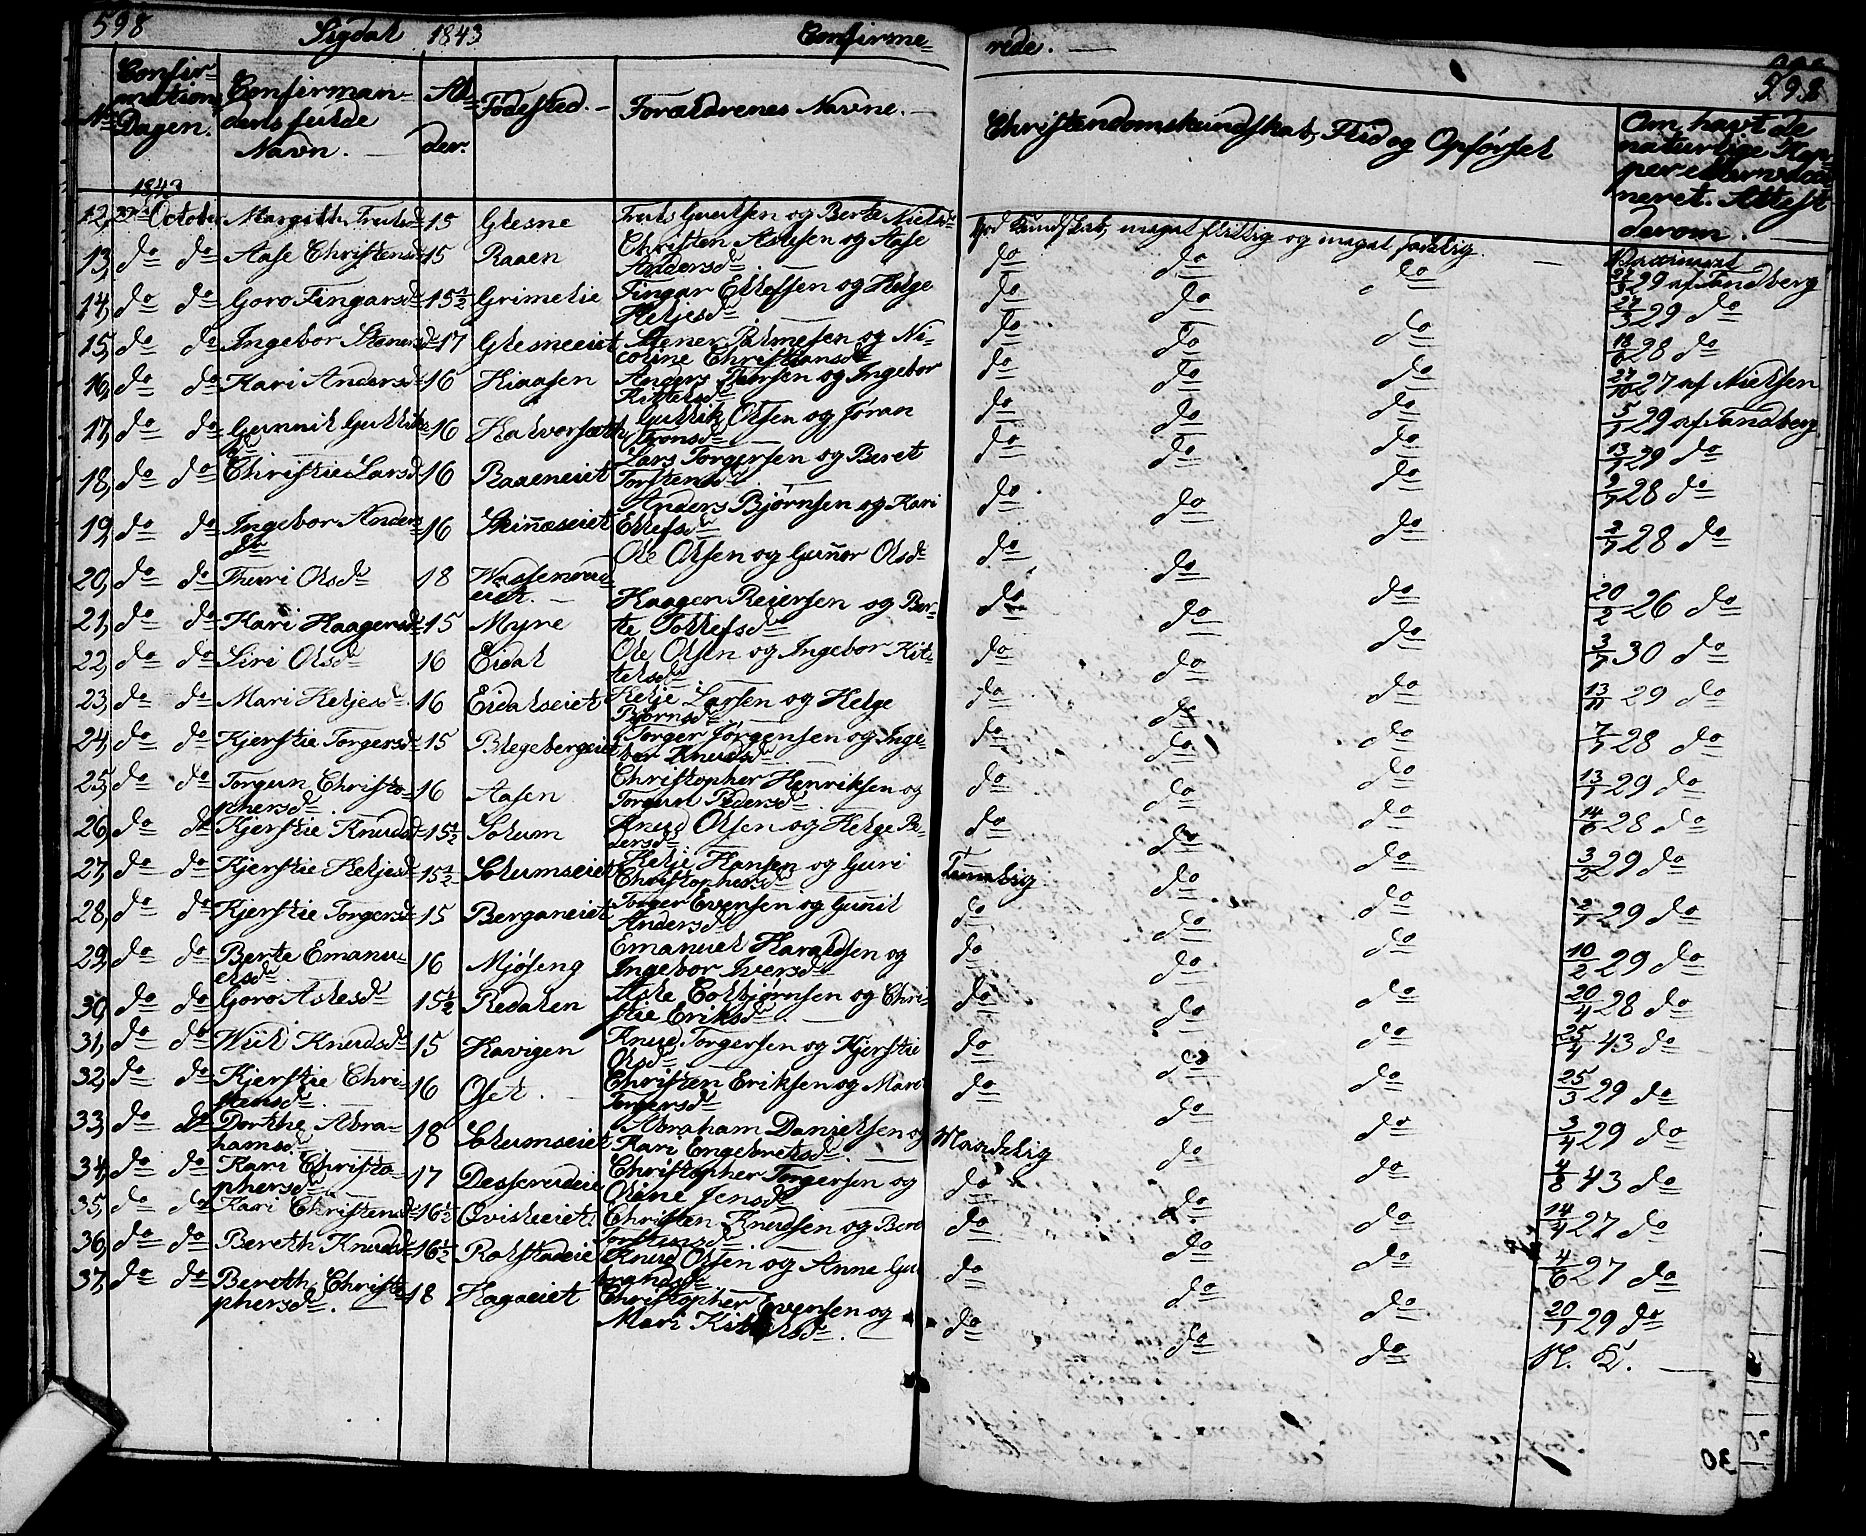 598 Sigdal 1843 Confirme-
rede. — 598
No Confirmations Dagen. Confirmandens fulde Navn. — Alder. Fødested. — Forældrenes Navne. — Christendomskundskab, Flid og Opførsel Om havt de naturlige Kopper eller vaccineret. Attest derom.
1843
12, October Margith Trulsd 15 Glesne Truls og Berte Nielsd God Kundskab, meget flittig og meget sædelig. — Vaccineret
29 af Tandberg
13, do do Aase Christensd 15 Raaen Christen Aslesen og Aase Andersd. do do do 27/3 29 do
14, do do Goro Fingarsd 15½ Grimelie Fingar Ellefsen og Helge Heljesd do do 28 do
15, do do Ingebor Stenersd 17 Glesneeiet Stener Palmesen og Nicoline Christiansd do do do 27/10 27 af Nielsen
16, do do Kari Andersd 16 Kiaasen Anders Tursen og Ingebor Kittelsd do do do 5/7 29 af Tandberg
17, do do Gunnil Gulliksd 16 Halvorseth Gullik Olsen og Jøran Tronsd do do do 13/7 29 do
18, do do Christie Larsd 16 Raaeneiet Lars Torgersen og Beret Torstensd do do do 28 do
19, do do Ingebor Andersd 16 Skinnæseiet Anders Bjørnsen og Kari Ellefsd do do do 28 do
20, do do Thuri Olsd 18 Ole Olsen og Gunnor Olsd do do do 20/2 26 do
21, do do Kari Haagensd 15 Myre Haagen Reiersen og Berte Tollefsd do do do 3/7 30 do
22, do do Siri Olsd 16 Eidal Ole Olsen og Ingebor Kittelsd do do do 13/11 29 do
23, do do Mari Heljesd 16 Eidalseiet Helje Larsen og Helge Bjørnsd do do do 7/7 28 do
24, do do Kjerstie Torgersd 15 Blegebergeiet Torger Jørgensen og Ingebor Knudsd do do do 13/7 29 do
25, do do Torgun Christophersd 16 Aasen Christopher Henriksen og Torgun Pedersd do do do 14/6 28 do
26, do do Kjerstie Knudsd 15½ Solum Knud Olsen og Helge Pedersd do do do 3/2 29 do
27, do do Kjerstie Heljesd 15½ Solumseiet Helje Hansen og Guri Christophersd Temmelig do do 29 do
28, do do Kjerstie Torgersd 15 Berganeiet Torger Evensen og Gunnil Andersd do do do 10/2 29 do
29, do do Berte Emanuelsd 16 Mjøseng Emanuel Haraldsen og Ingebor Iversd do do do 20/4 28 do
30, do do Goro Aslesd 15½ Redalen Asle Colbjørnsen og Christie Eriksd do do do 25/4 43 do
31, do do Knudsd 15 Havigen Knud Torgersen og Kjerstie Olsd do do do 25/3 29 do
32, do do Kjerstie Christensd 16 Oset. Christen Eriksen og Mari Torgersd do do do 3/4 29 do
33, do do Dorthe Abrahamsd 18 Solumseiet Abraham Danielsen og Kari Engebretsd Maadelig do do 4/8 43 do
34, do do Kari Christophersd 17 Christopher Torgersen og Oline Jensd do do do 14/4 27 do
35, do do Kari Christensd 16½ Qvisleeiet Christen Knudsen og Bero Torstensd do do do 4/6 27 do
36, do do Bereth Knudsd 16½ Ralstadeie Knud Olsen og Anne Gulbrandsd do do do 20/7 29 do
37, do do Bereth Christophersd. 18 Hagaeiet Christopher Evensen og Mari Kittelsd. do do do
30